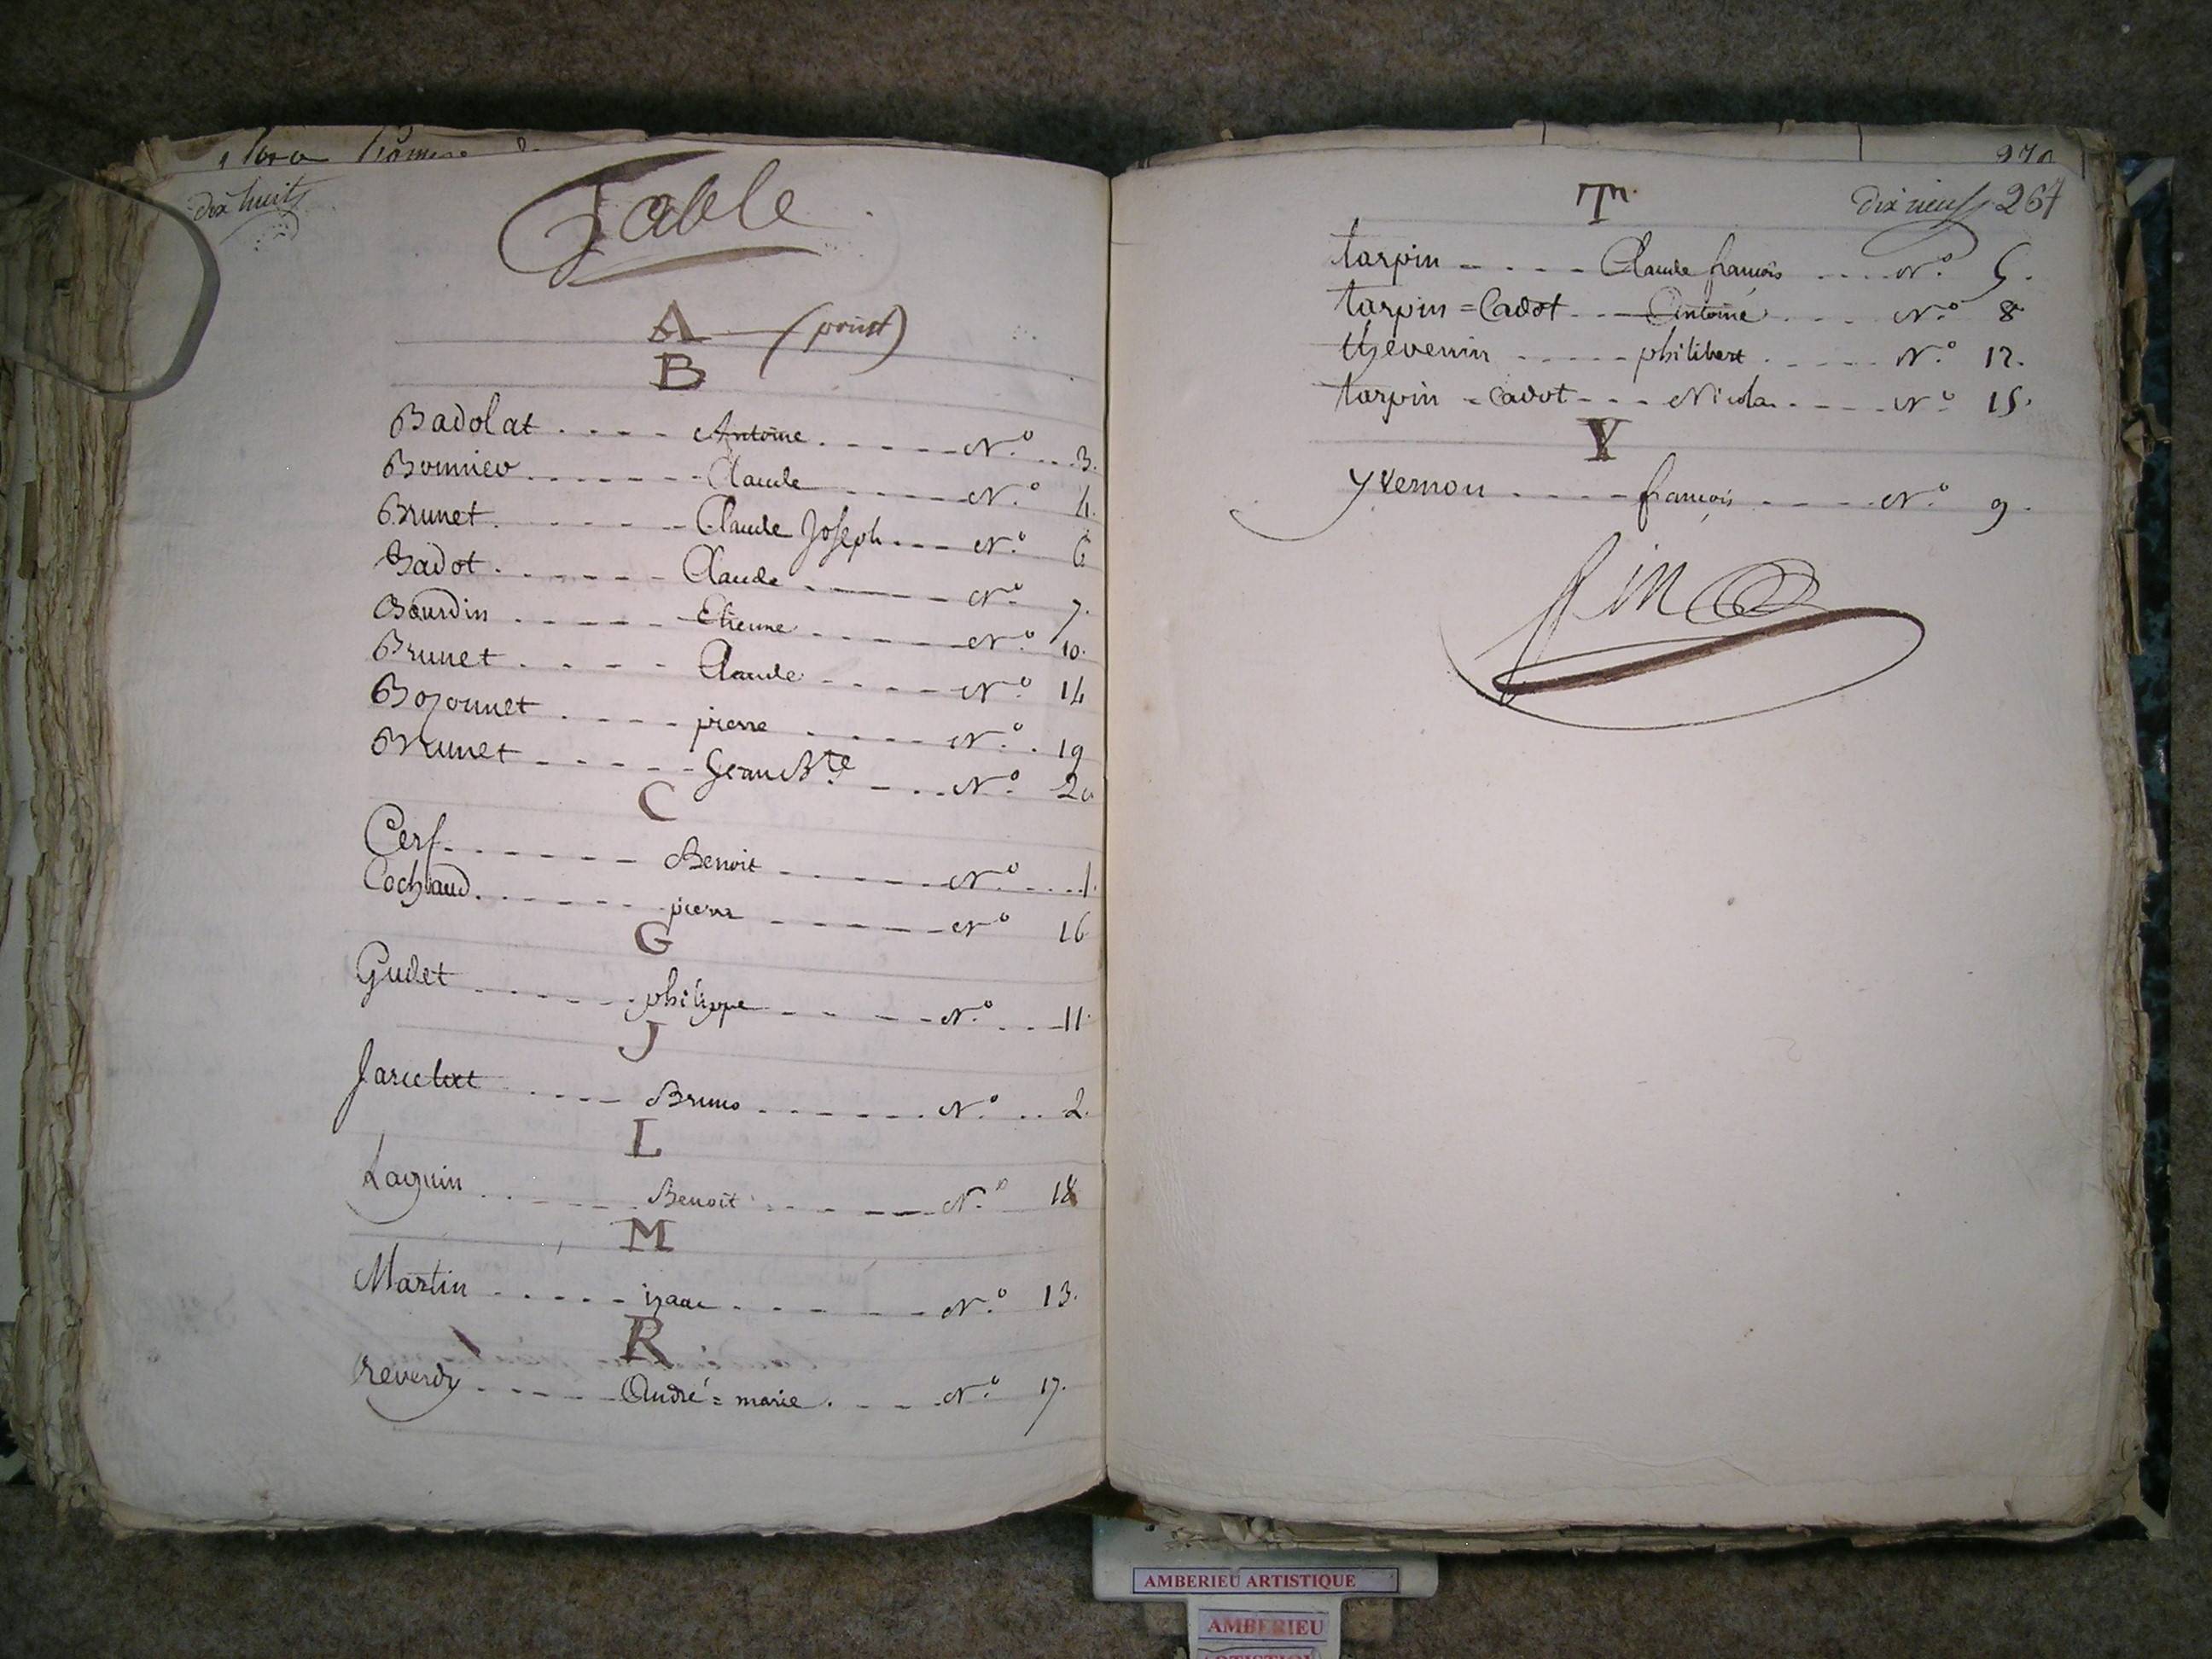 dix huit
Table
A — (point)
B
Badolat .... Antoine ..... N.º ... 3.
Bonnieu ...... Claude ..... N.º 4.
Brunet ...... Claude Joseph ... N.º 6
Badot ...... Claude ..... N.º 7.
Bourdin ..... Etienne ..... N.º 10.
Brunet .... Claude ..... N.º 14
Bozonnet .... pierre ..... N.º . 19
Brunet ..... Jean Bte ... N.º 20
C
Cerf ...... Benoit ..... N.º .... 1.
Cochaud ...... pierre ..... N.º 16
G
Gudet ..... philippe .... N.º ... 11.
J
Bruno ...... N.º .. 2.
L
Laguin ..... Benoit ..... N.º 18
M
Martin ..... izaac ..... N.º 13.
R
Reverdy .... André = marie .... N.º 17.
270
dix neuf 264
T
tarpin .... Claude françois .... N.º 5.
tarpin = Cadot ... Antoine .... N.º 8
thevenin ..... philibert ..... N.º 12.
tarpin = Cadot ... Nicolas .... N.º 15.
Y
yvernon .... françois .... N.º 9.
fin
AMBERIEU ARTISTIQUE
AMBERIEU
ARTISTIQUE